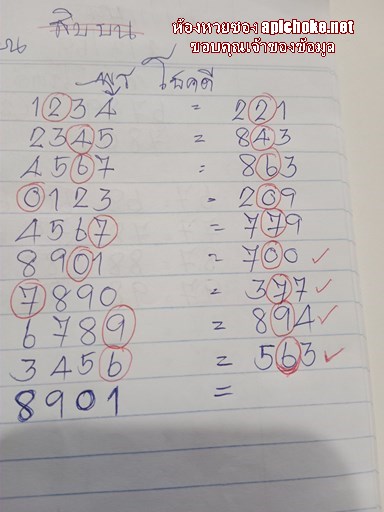 ห้องหวยซอง aplchoke.net
ขอบคุณเจ้าของข้อมูล
น สิบบน
พร โชคดี
1234 = 221
2345 = 843
4567 = 863
0123 = 209
4567 = 779
8901 = 700 ✓
7890 = 377 ✓
6789 = 894 ✓
3456 = 563 ✓
8901 =